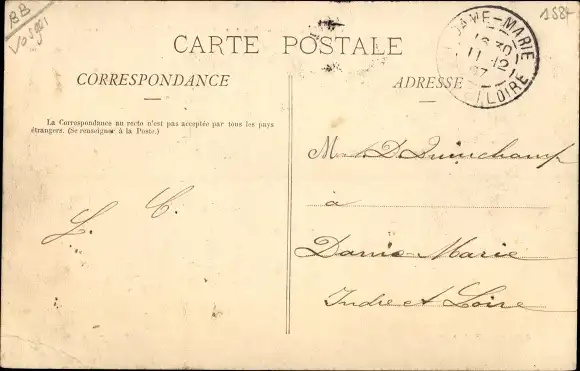 BB
Vosges
158
DAME-MARIE
16 30
11 12
07
LOIRE
CARTE POSTALE
CORRESPONDANCE
ADRESSE
La Correspondance au recto n'est pas acceptée par tous les pays
étrangers. (Se renseigner à la Poste.)
D. Quinchamp
à
L. C.
Dame Marie
Indre et Loire